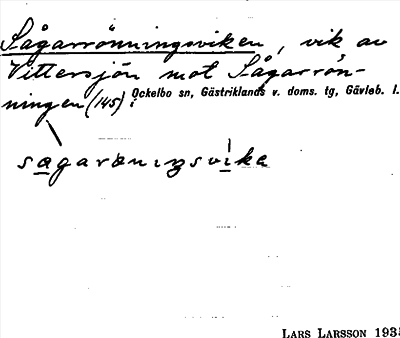 Sågarrönningsviken, vik av
Vittersjön mot Sågarrön-
ningen (145) i Ockelbo sn, Gästriklands v. doms. tg, Gävleb. l.
sagarøningsvika
LARS LARSSON 1935